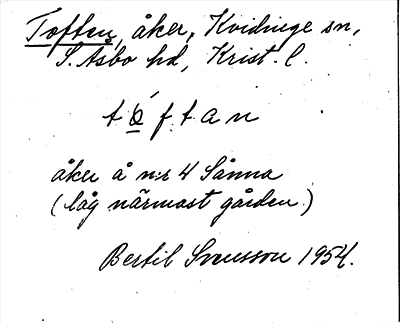 Toften, åker, Kvidinge sn,
S. Åsbo hd, Krist. l.
t ò f t a n
åker å nr 4 Sånna
(låg närmast gården.)
Bertil Svensson 1954.